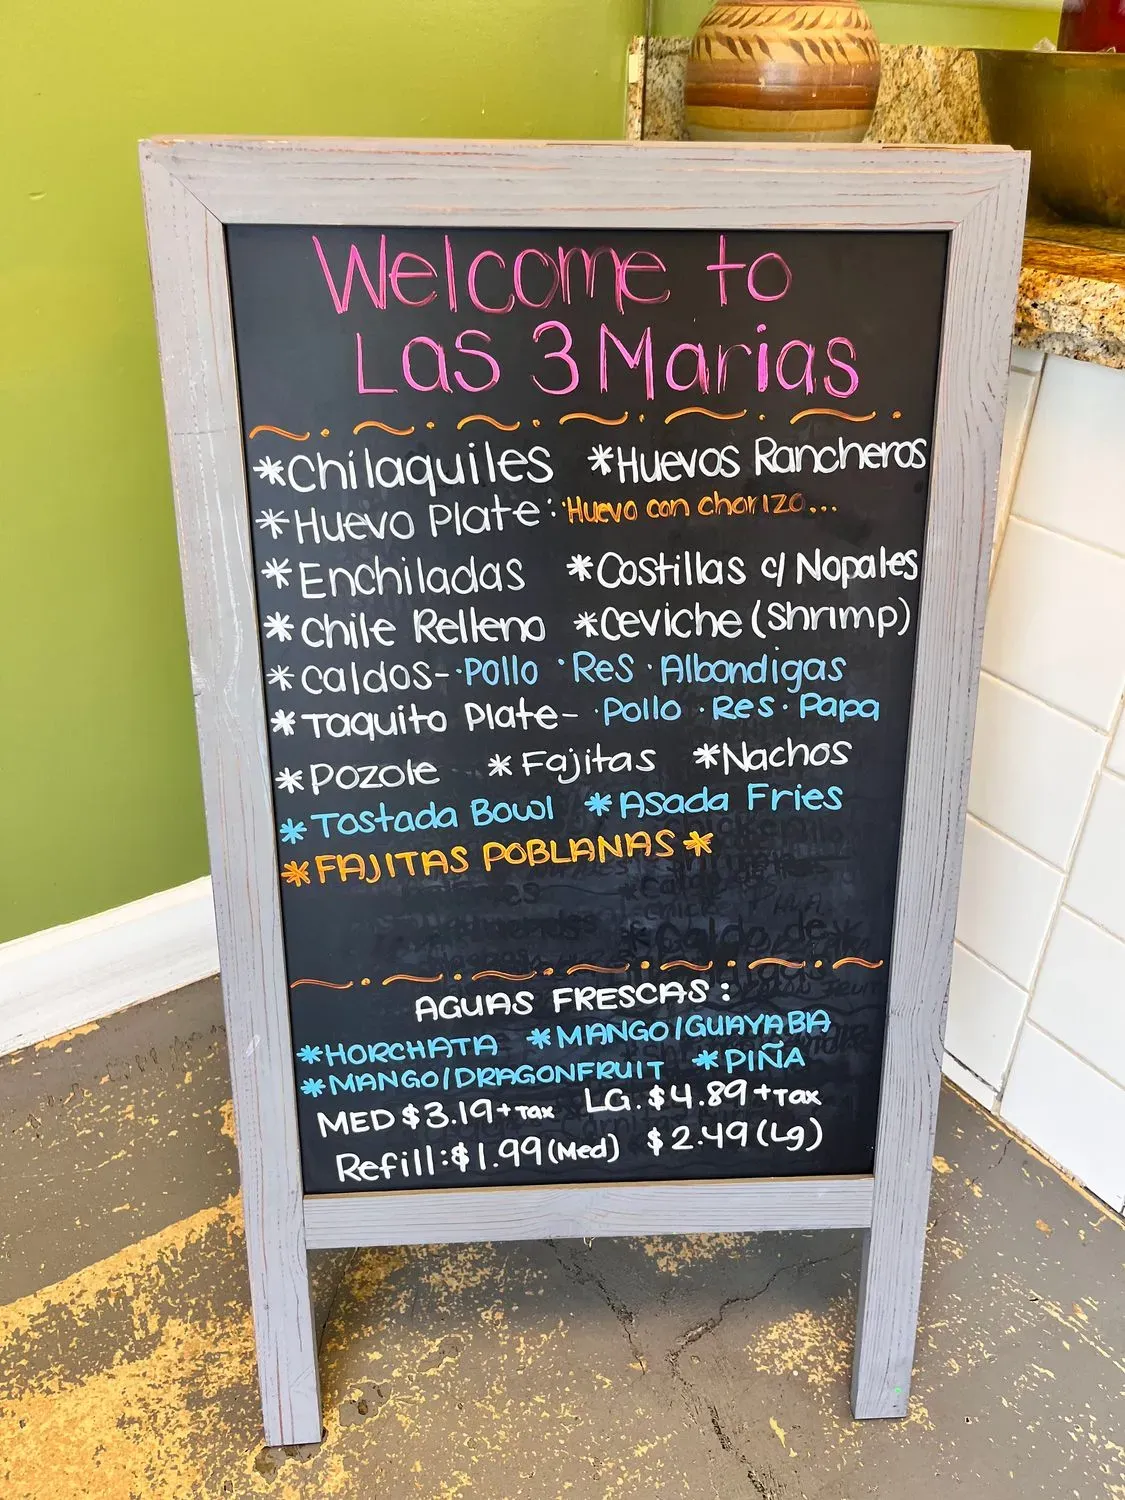 Welcome to
Las 3 Marias
*Chilaquiles *Huevos Rancheros
*Huevo Plate: ·Huevo con chorizo...
*Enchiladas *Costillas c/ Nopales
*Chile Relleno *Ceviche (Shrimp)
*Caldos- ·Pollo ·Res ·Albondigas
*Taquito Plate- ·Pollo ·Res ·Papa
*Pozole *Fajitas *Nachos
*Tostada Bowl *Asada Fries
*FAJITAS POBLANAS*
AGUAS FRESCAS:
*HORCHATA *MANGO/GUAYABA
*MANGO/DRAGONFRUIT *PIÑA
MED $3.19+Tax LG. $4.89+Tax
Refill: $1.99(Med) $2.49(Lg)